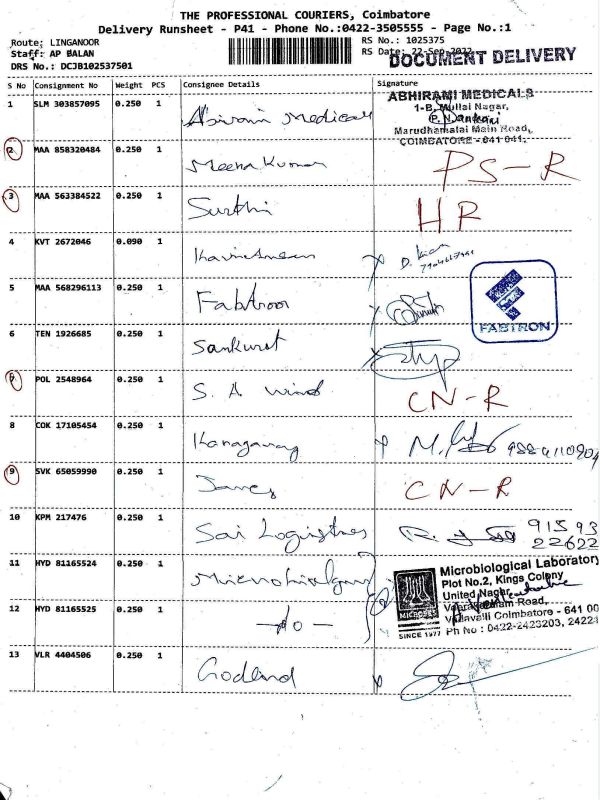 THE PROFESSIONAL COURIERS, Coimbatore
Delivery Runsheet - P41 - Phone No.:0422-3505555 - Page No.:1
Route: LINGANOOR
Staff: AP BALAN
DRS No.: DCJB102537501
RS No.: 1025375
RS Date: 22-Sep-2022
DOCUMENT DELIVERY
S No Consignment No Weight PCS Consignee Details Signature
1 SLM 303857095 0.250 1 Abirami Medicals
ABHIRAMI MEDICALS
1-B, Mullai Nagar,
Marudhamalai Main Road,
COIMBATORE - 641 041.
2 MAA 858320484 0.250 1 Meena Kumar PS-R
3 MAA 563384522 0.250 1 Surthi HR
4 KVT 2672046 0.090 1
5 MAA 568296113 0.250 1 Fabtroon
FABTRON
6 TEN 1926685 0.250 1
7 POL 2548964 0.250 1 S. A wind CN-R
8 COK 17105454 0.250 1 Kanagaraj
9 SVK 65059990 0.250 1 CN-R
10 KPM 217476 0.250 1 Sai Logistics 91593
22622
11 HYD 81165524 0.250 1
Microbiological Laboratory
Plot No.2, Kings Colony
United Nagar,
Road,
Vadavalli Coimbatore - 641 00
Ph No : 0422-2423203, 24221
MICROLAB
SINCE 1977
12 HYD 81165525 0.250 1 -do-
13 VLR 4404506 0.250 1 Godlind